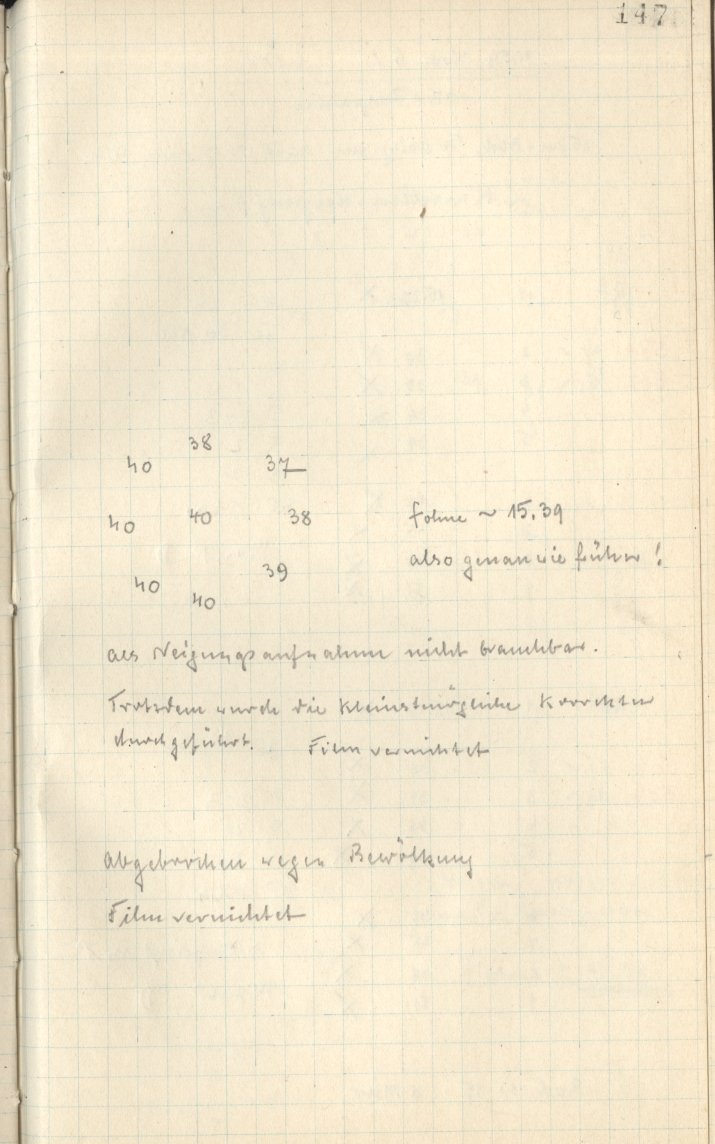 147
38
40 37
40 40 38 fokus ~ 15.39
also genau wie früher!
40 39
40
als Neigungsaufnahme nicht brauchbar.
Trotzdem wurde die kleinstmögliche Korrektur
durchgeführt. Film vernichtet
abgebrochen wegen Bewölkung
Film vernichtet